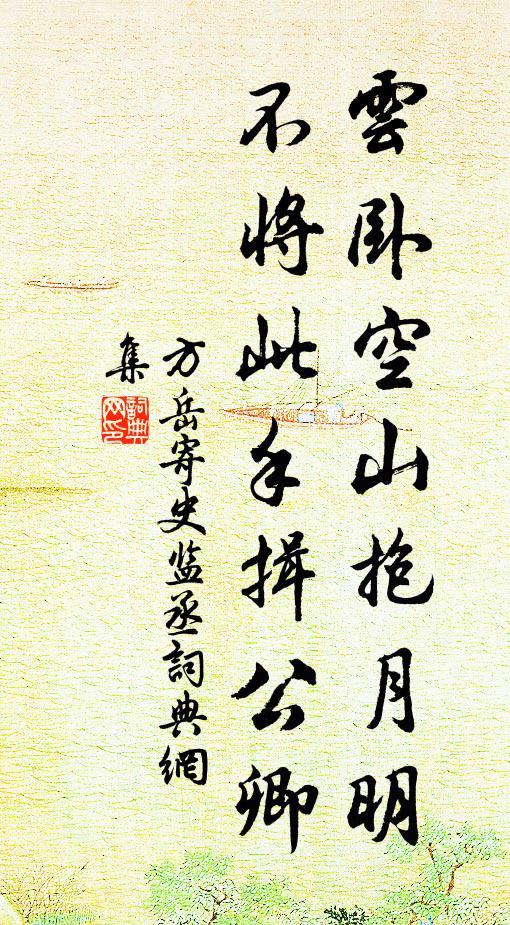 雲卧空山抱月明
不將此手揖公卿
方岳寄史监丞詞典網
集
詞典
网印